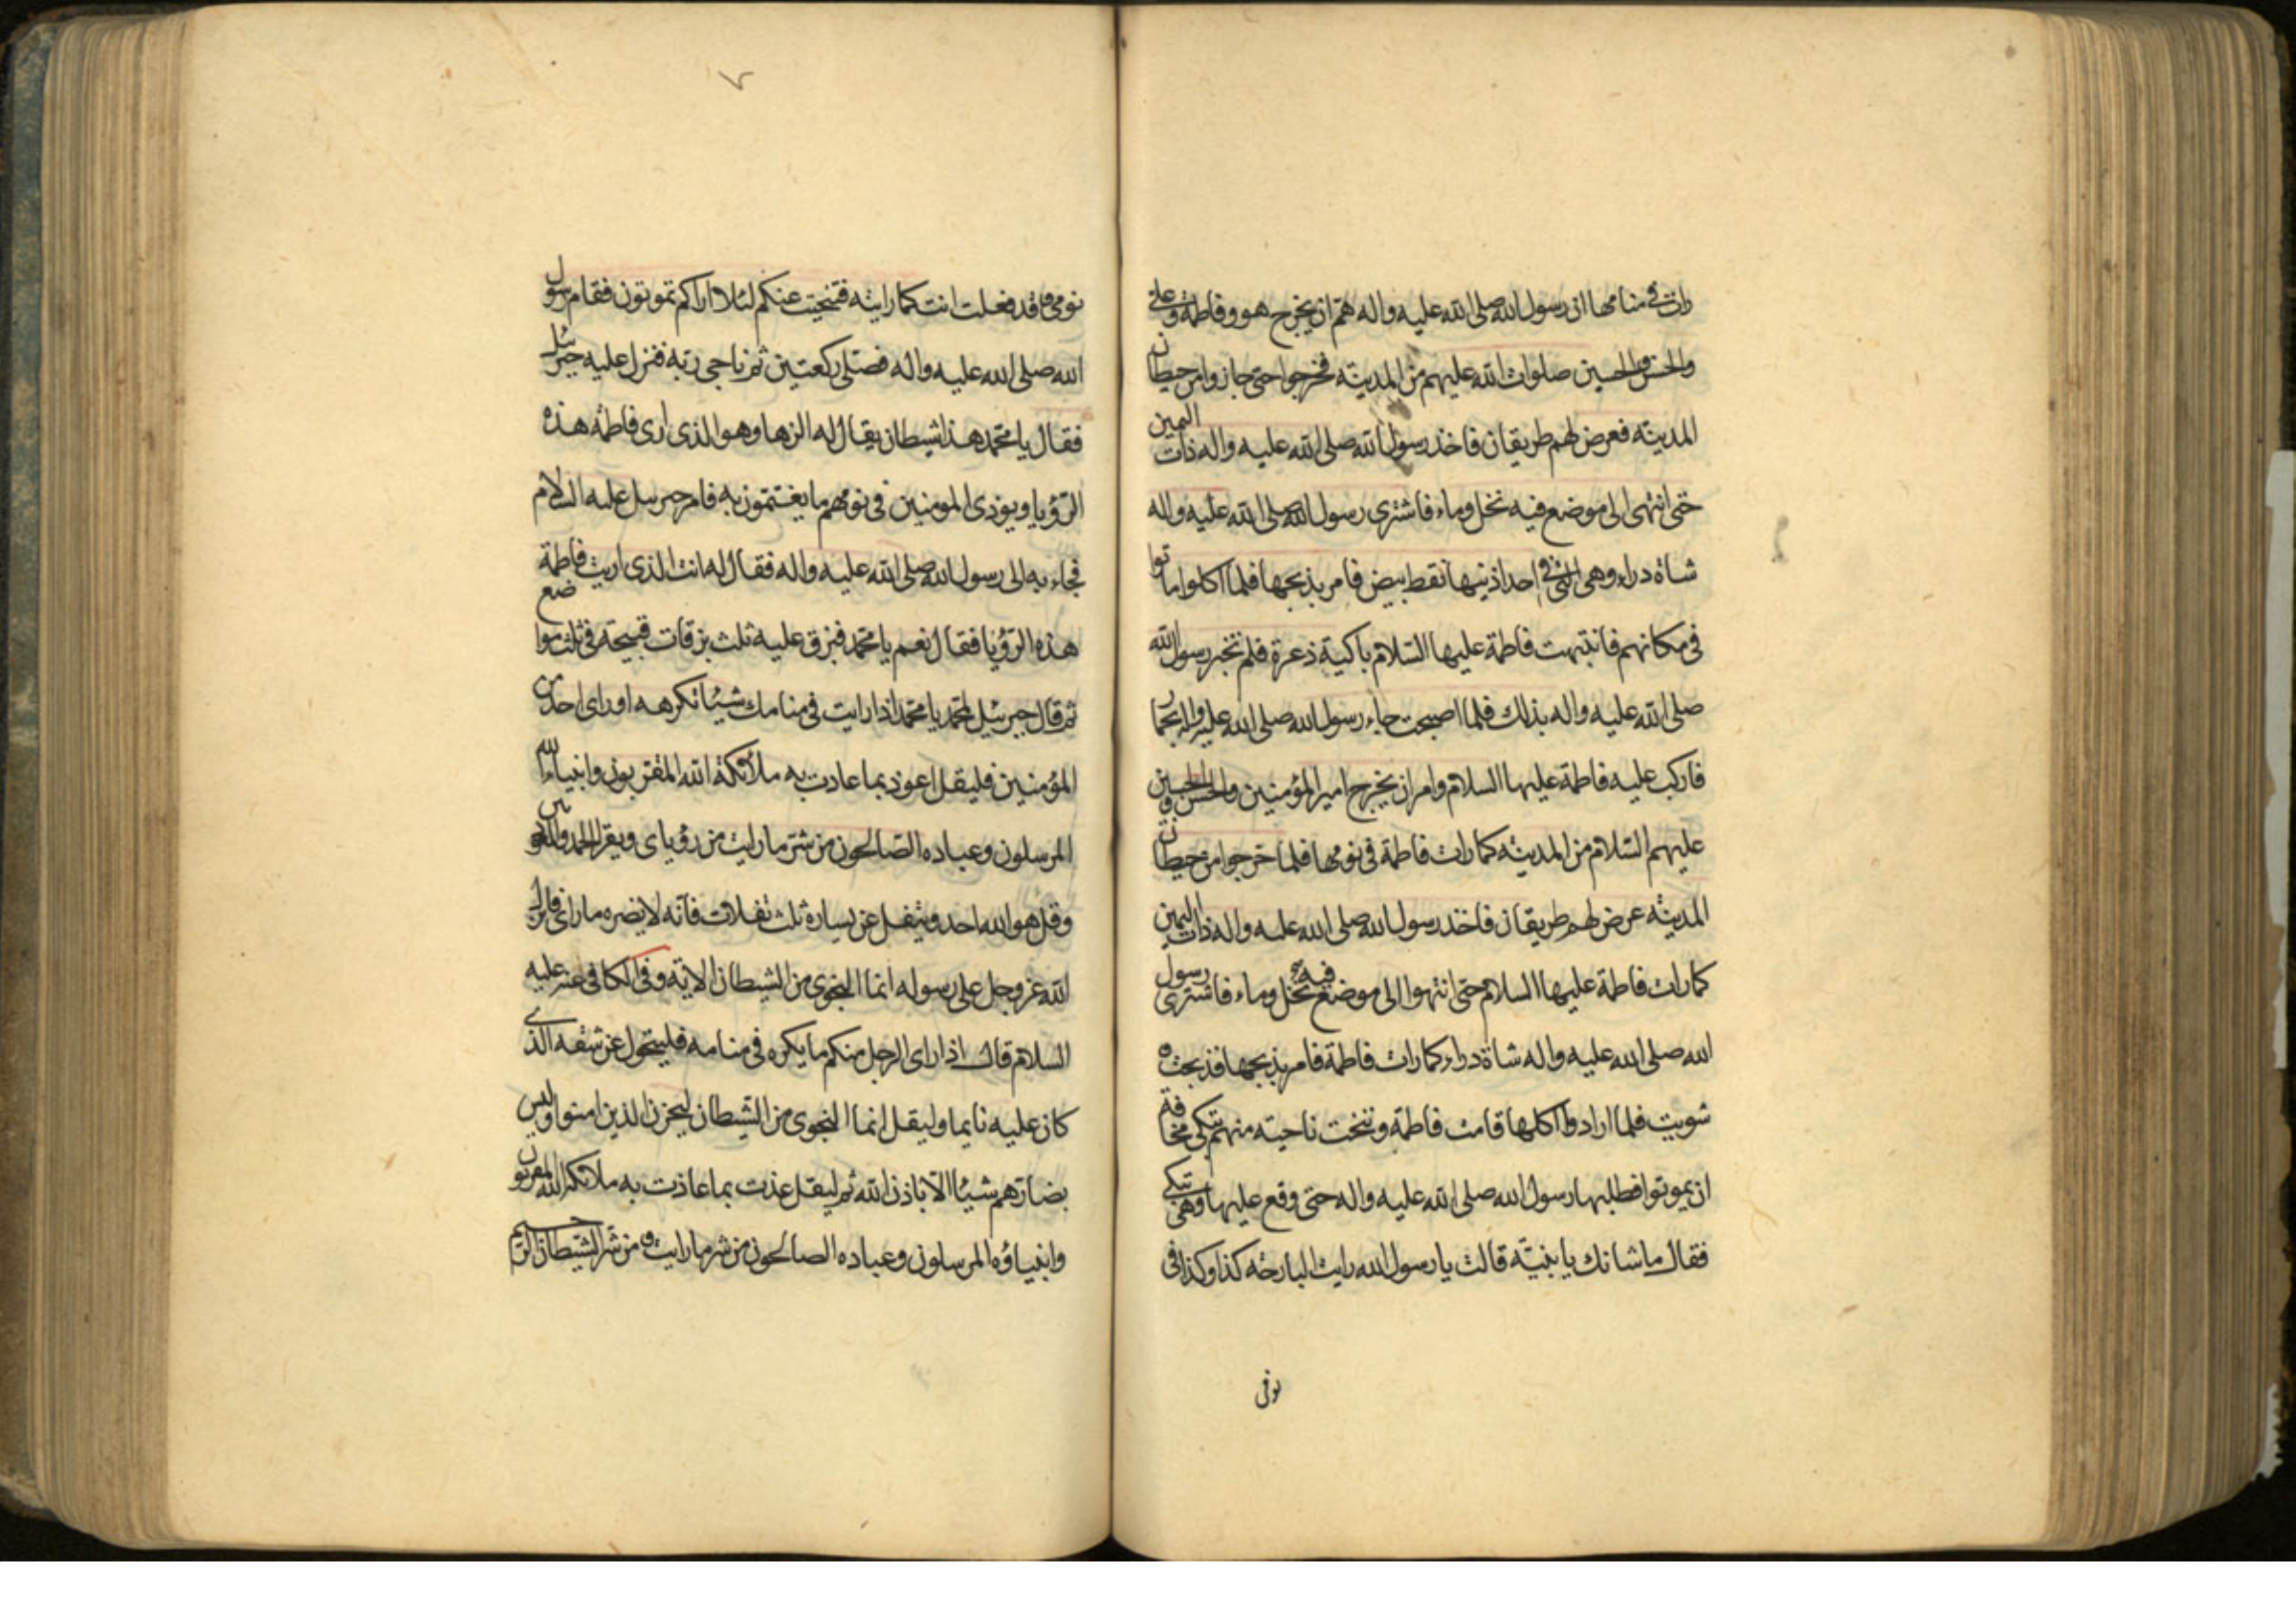 رات في منامها ان رسول الله صلى الله عليه واله هم ان يخرج هو وفاطمة وعلى
والحسن والحسين صلوات الله عليهم من المدينة فخرجوا حتى جازوا من حيطان
المدينة فعرض لهم طريقان فاخذ رسول الله صلى الله عليه واله ذات اليمين
حتى انتهى الى موضع فيه نخل وماء فاشترى رسول الله صلى الله عليه واله
شاة دراء وهى التي في احد اذنيها نقط بيض فامر بذبحها فلما اكلوا ماتوا
في مكانهم فانتبهت فاطمة عليها السلام باكية ذعرة فلم تخبر رسول الله
صلى الله عليه واله بذلك فلما اصبحت جاء رسول الله صلى الله عليه واله بحمار
فاركب عليه فاطمة عليها السلام وامر ان يخرج امير المؤمنين والحسن والحسين
عليهم السلام من المدينة كما رات فاطمة في نومها فلما خرجوا من حيطان
المدينة عرض لهم طريقان فاخذ رسول الله صلى الله عليه واله ذات اليمين
كما رات فاطمة عليها السلام حتى انتهوا الى موضع فيه نخل وماء فاشترى رسول
الله صلى الله عليه واله شاة دراء كما رات فاطمة فامر بذبحها فذبحت و
شويت فلما ارادوا اكلها قامت فاطمة وتنحت ناحية منهم تبكى مخافة
ان يموتوا فطلبها رسول الله صلى الله عليه واله حتى وقع عليها وهى تبكى
فقال ما شانك يا بنية قالت يا رسول الله رايت البارحة كذا وكذا فى
نومى
٧
نومى وقد فعلت انت كما رايته فتنحيت عنكم لئلا اراكم تموتون فقام رسول
الله صلى الله عليه واله فصلى ركعتين ثم ناجى ربه فنزل عليه جبرئيل
فقال يا محمد هذا شيطان يقال له الزها وهو الذى ارى فاطمة هذه
الرؤيا ويوذى المومنين فى نومهم ما يغتمون به فامر جبرئيل عليه السلام
فجاء به الى رسول الله صلى الله عليه واله فقال له انت الذى اريت فاطمة
هذه الرؤيا فقال نعم يا محمد فبزق عليه ثلث بزقات قبيحة فى ثلث مواضع
ثم قال جبرئيل لمحمد يا محمد اذا رايت فى منامك شيئا تكرهه او راى احد من
المؤمنين فليقل اعوذ بما عاذت به ملائكة الله المقربون وانبياء الله
المرسلون وعباده الصالحون من شر ما رايت من رؤياى ويقرا الحمد والمعوذتين
وقل هو الله احد ويتفل عن يساره ثلث تفلات فانه لا يضره ما راى فانزل
الله عز وجل على رسوله انما النجوى من الشيطان الاية وفى الكافى عنه عليه
السلام قال اذا راى الرجل منكم ما يكره فى منامه فليتحول عن شقه الذى
كان عليه نايما وليقل انما النجوى من الشيطان ليحزن الذين امنوا وليس
بضارهم شيئا الا باذن الله ثم ليقل عذت بما عاذت به ملائكة الله المقربون
وانبياؤه المرسلون وعباده الصالحون من شر ما رايت و من شر الشيطان الرجيم